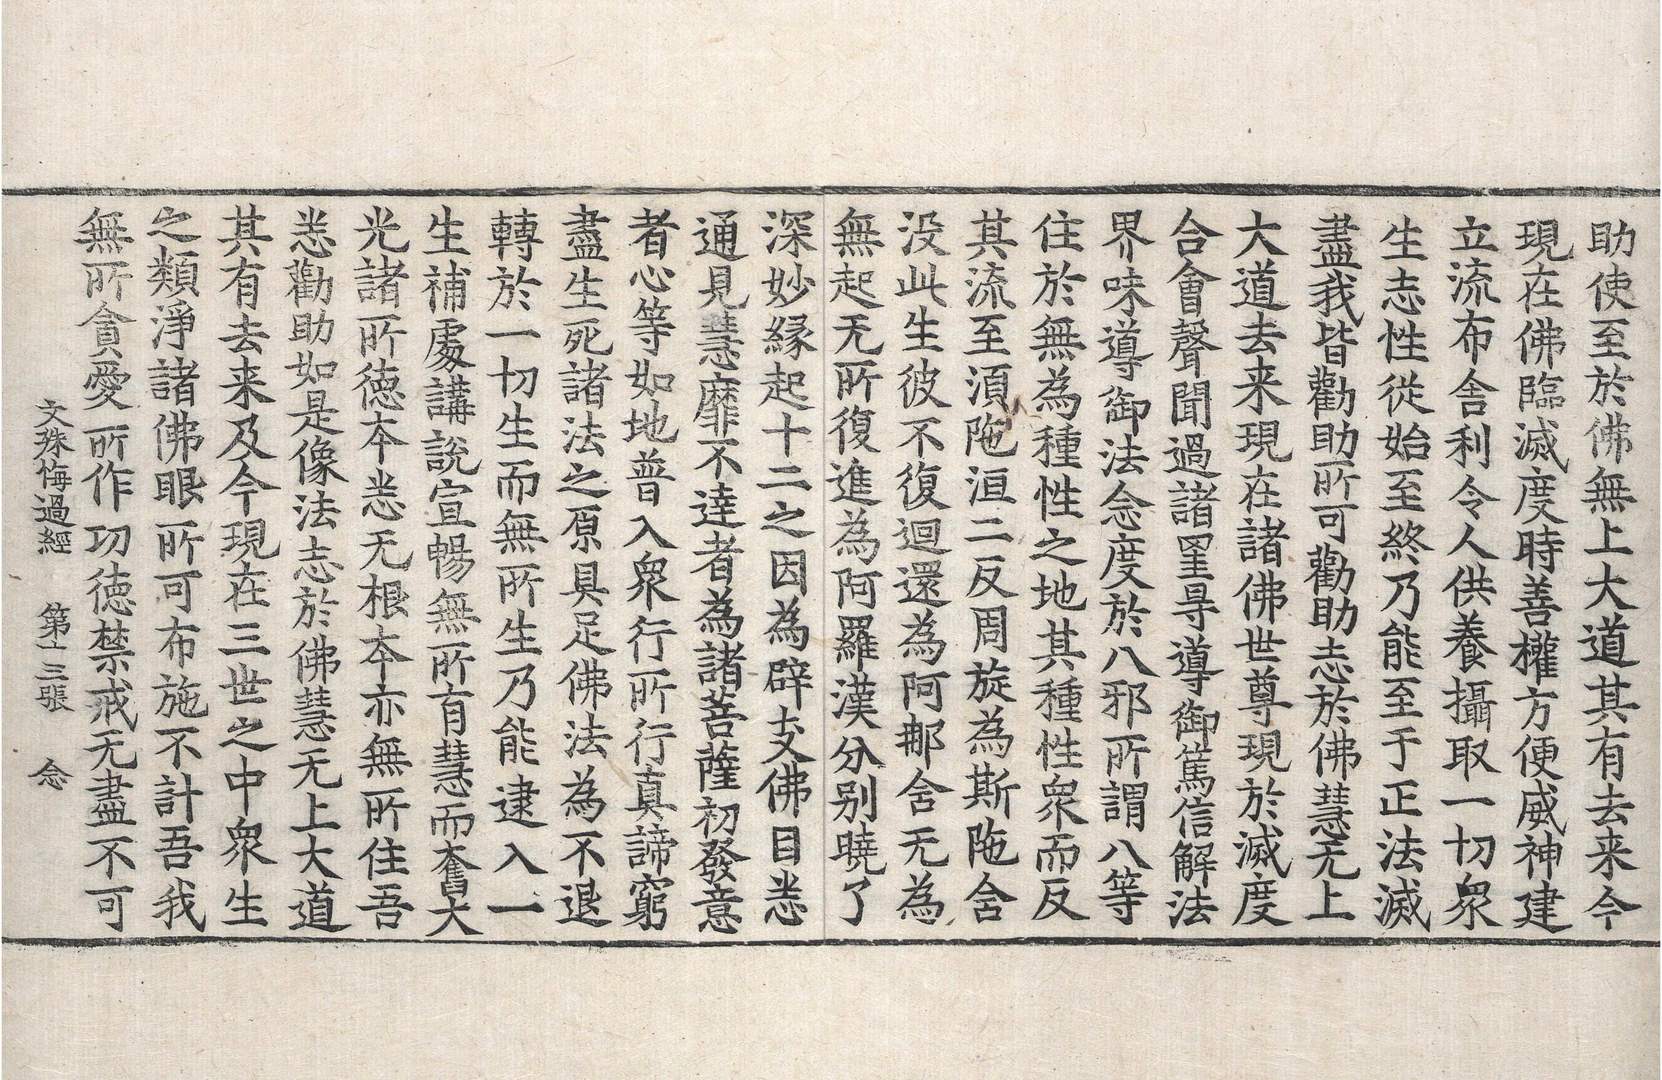 助使至於佛無上大道其有去来今
現在佛臨滅度時善權方便威神建
立流布舎利令人供養攝取一切衆
生志性從始至終乃能至于正法滅
盡我皆勸助所可勸助志於佛慧无上
大道去来現在諸佛世尊現於滅度
合會聲聞過諸罣㝵導御篤信解法
界味導御法念度於八邪所謂八等
住於無為種性之地其種性衆而反
其流至湏陁洹二反周旋為斯陁含
没此生彼不復迴還為阿那含无為
無起无所復進為阿羅漢分別曉了
深妙縁起十二之因為辟支佛目悉
通見慧靡不達者為諸菩薩初發意
者心等如地普入衆行所行真諦窮
盡生死諸法之原具足佛法為不退
轉於一切生而無所生乃能逮入一
生補處講說宣暢無所有慧而奮大
光諸所徳本悉无根本亦無所住吾
悉勸助如是像法志於佛慧无上大道
其有去来及今現在三世之中衆生
之類淨諸佛眼所可布施不計吾我
無所貪愛所作功徳禁戒无盡不可
文殊悔過經 第十三張 念